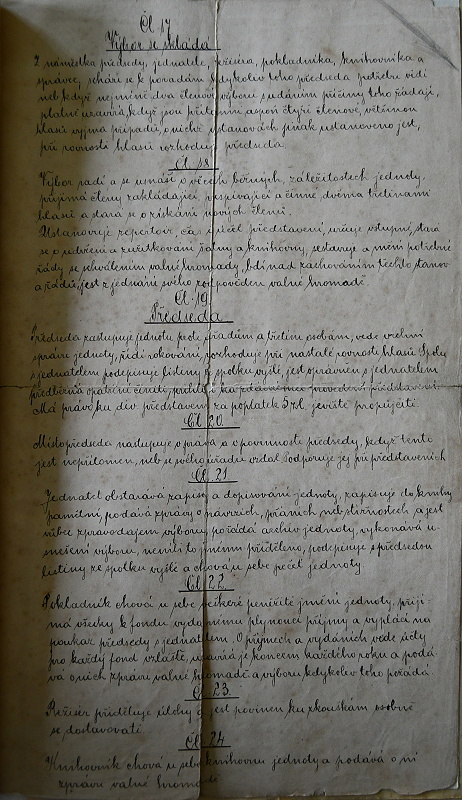 Čl. 17
Výbor se skládá
z náměstka předsedy, jednatele, režiséra, pokladníka, knihovníka a
správce, schází se ku poradám kdykoliv toho předseda potřebu vidí
neb když nejméně dva členové výboru s udáním příčiny toho žádají,
platně usnáší, když jsou přítomni aspoň čtyři členové, většinou
hlasů vyjma případů, o nichž v stanovách jinak ustanoveno jest,
při rovnosti hlasů rozhoduje předseda.
Čl. 18
Výbor radí a se usnáší o věcech běžných, záležitostech jednoty,
přijímá členy zakládající, přispívající a činné dvěma třetinami
hlasů a stará se o získání nových členů.
Ustanovuje repertoir, čas a účel představení, určuje vstupné, stará
se o udržení a zužitkování šatny a knihovny, sestavuje a mění potřebné
řády se schválením valné hromady, bdí nad zachováním těchto stanov
a řádů, jest z jednání svého zodpověden valné hromadě.
Čl. 19
Předseda
Předseda zastupuje jednotu proti úřadům a třetím osobám, vede vrchní
správu jednoty, řídí rokování, rozhoduje při nastalé rovnosti hlasů. Spolu
s jednatelem podepisuje listiny ze spolku vyšlé, jest oprávněn s jednatelem
předběžná opatření činiti,
Má právo ku div. představení za poplatek 5 zl. jeviště propůjčiti.
Čl. 20
Místopředseda nastupuje v práva a v povinnosti předsedy, když tento
jest nepřítomen, neb se svého úřadu vzdal. Podporuje jej při představeních
Čl. 21
Jednatel obstarává zápisy a dopisování jednoty, zapisuje do knihy
pamětní, podává zprávy o návrzích, přáních neb stížnostech a jest
vůbec zpravodajem výboru, pořádá archiv jednoty, vykonává u-
snešení výboru, není-li to jinému přiděleno, podepisuje s předsedou
listiny ze spolku vyšlé a chová u sebe pečeť jednoty
Čl. 22
Pokladník chová u sebe veškeré peněžité jmění jednoty, přijí-
má všecky k fondu plynoucí příjmy a vyplácí na
poukaz předsedy s jednatelem. O příjmech a vydáních vede účty
pro každý fond zvláště, uzavírá je koncem každého roku a podá
vá o nich zprávu valné hromadě a výboru kdykoliv toho požádá.
Čl. 23
Režisér přiděluje úlohy a jest povinen ku zkouškám osobně
se dostavovati
Čl. 24
Knihovník chová u sebe knihovnu jednoty a podává o ní
zprávu valné hromadě